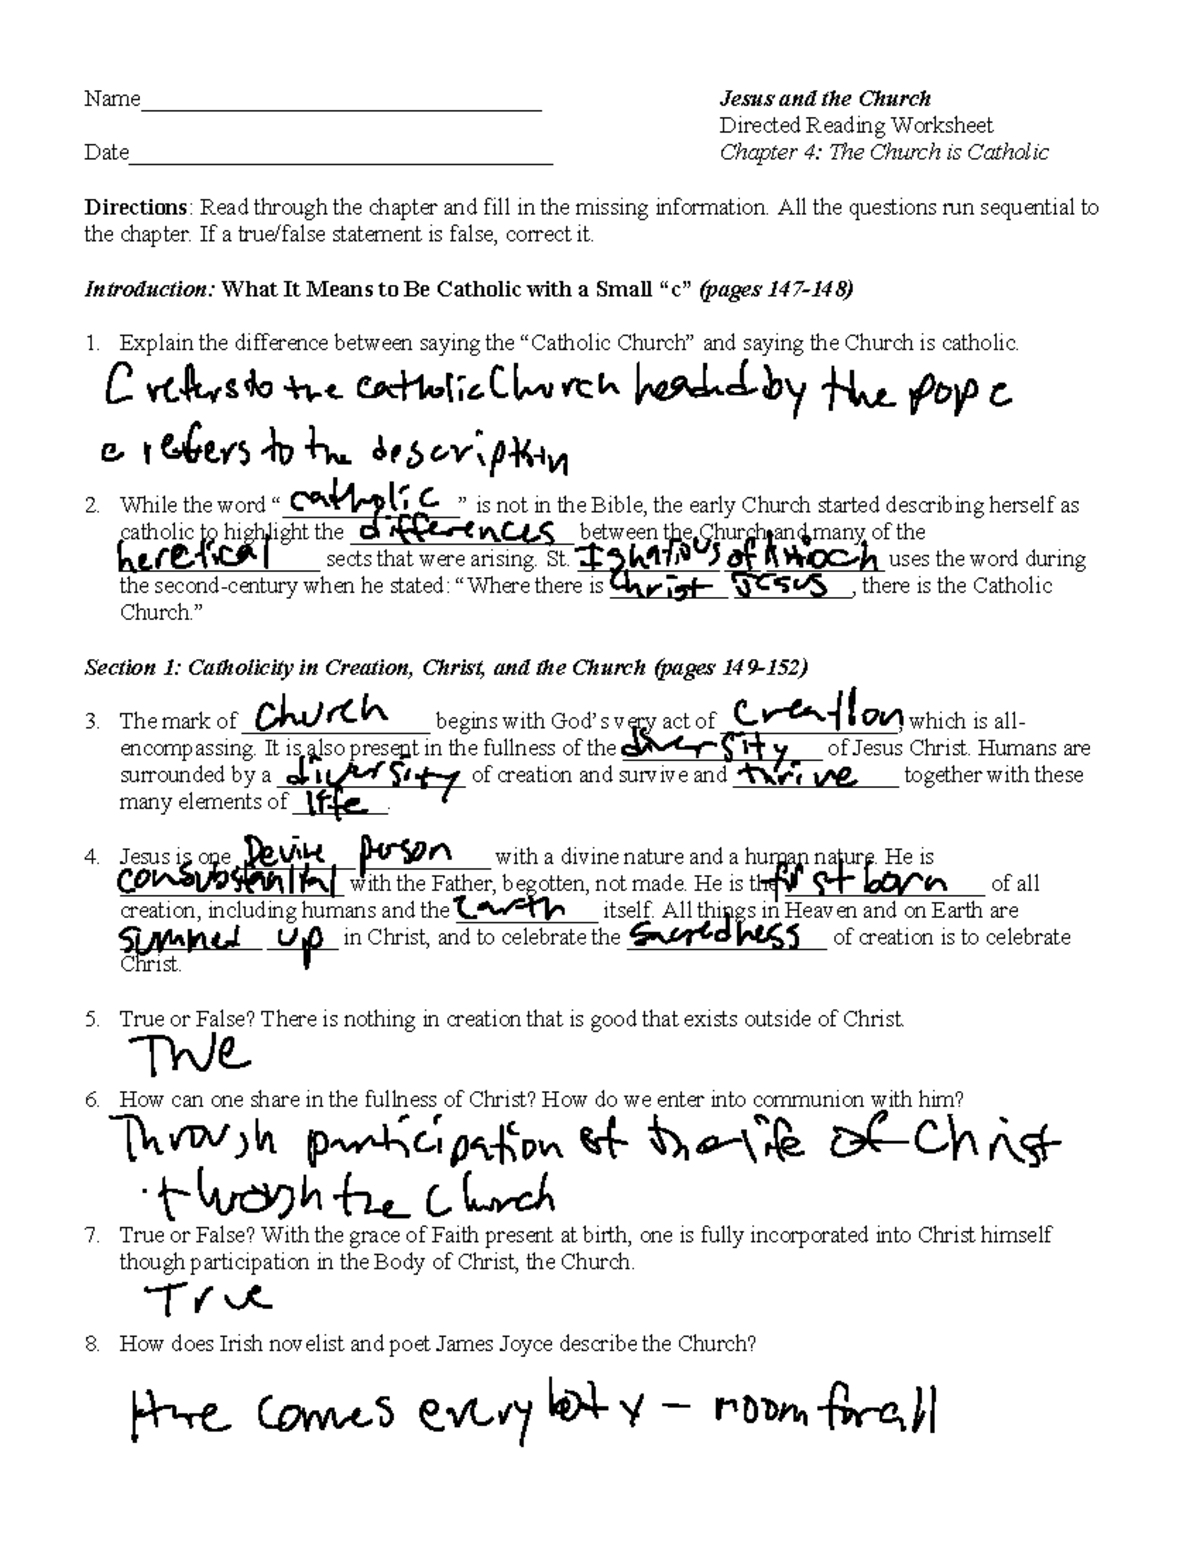 Name__________ Jesus and the Church
Directed Reading Worksheet
Date__________ Chapter 4: The Church is Catholic
Directions: Read through the chapter and fill in the missing information. All the questions run sequential to
the chapter. If a true/false statement is false, correct it.
Introduction: What It Means to Be Catholic with a Small “c” (pages 147-148)
1. Explain the difference between saying the “Catholic Church” and saying the Church is catholic.
C refers to the catholic Church headed by the pope
c refers to the description
2. While the word “ catholic ” is not in the Bible, the early Church started describing herself as
catholic to highlight the differences between the Church and many of the
heretical sects that were arising. St. Ignatious of Antioch uses the word during
the second-century when he stated: “Where there is Christ Jesus, there is the Catholic
Church.”
Section 1: Catholicity in Creation, Christ, and the Church (pages 149-152)
3. The mark of church begins with God’s very act of creation, which is all-
encompassing. It is also present in the fullness of the diversity of Jesus Christ. Humans are
surrounded by a diversity of creation and survive and thrive together with these
many elements of life.
4. Jesus is one Devine person with a divine nature and a human nature. He is
consubstantial with the Father, begotten, not made. He is the first born of all
creation, including humans and the Earth itself. All things in Heaven and on Earth are
summed up in Christ, and to celebrate the sacredness of creation is to celebrate
Christ.
5. True or False? There is nothing in creation that is good that exists outside of Christ.
True
6. How can one share in the fullness of Christ? How do we enter into communion with him?
Through participation of the life of Christ
through the Church
7. True or False? With the grace of Faith present at birth, one is fully incorporated into Christ himself
though participation in the Body of Christ, the Church.
True
8. How does Irish novelist and poet James Joyce describe the Church?
Here comes everybody – room for all